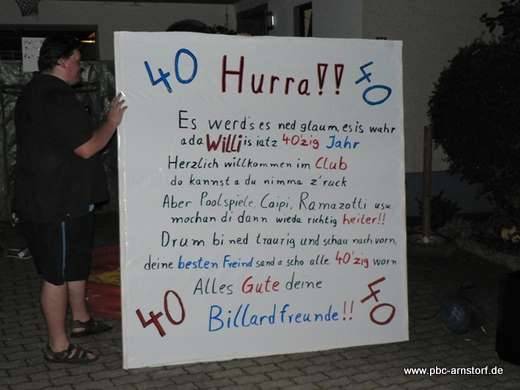 40 Hurra!! 40
Es werd's es ned glaum, es is wahr
a da Willi is iatz 40'zig Jahr
Herzlich willkommen im Club
do kannst a du nimma z'ruck
Aber Poolspiele, Caipi, Ramazotti usw
mochan di dann wieda richtig heiter!!
Drum bi ned traurig und schau nach vorn,
deine besten Freind sand a scho alle 40'zig worn
Alles Gute deine
40 Billardfreunde!! 40
www.pbc-arnstorf.de